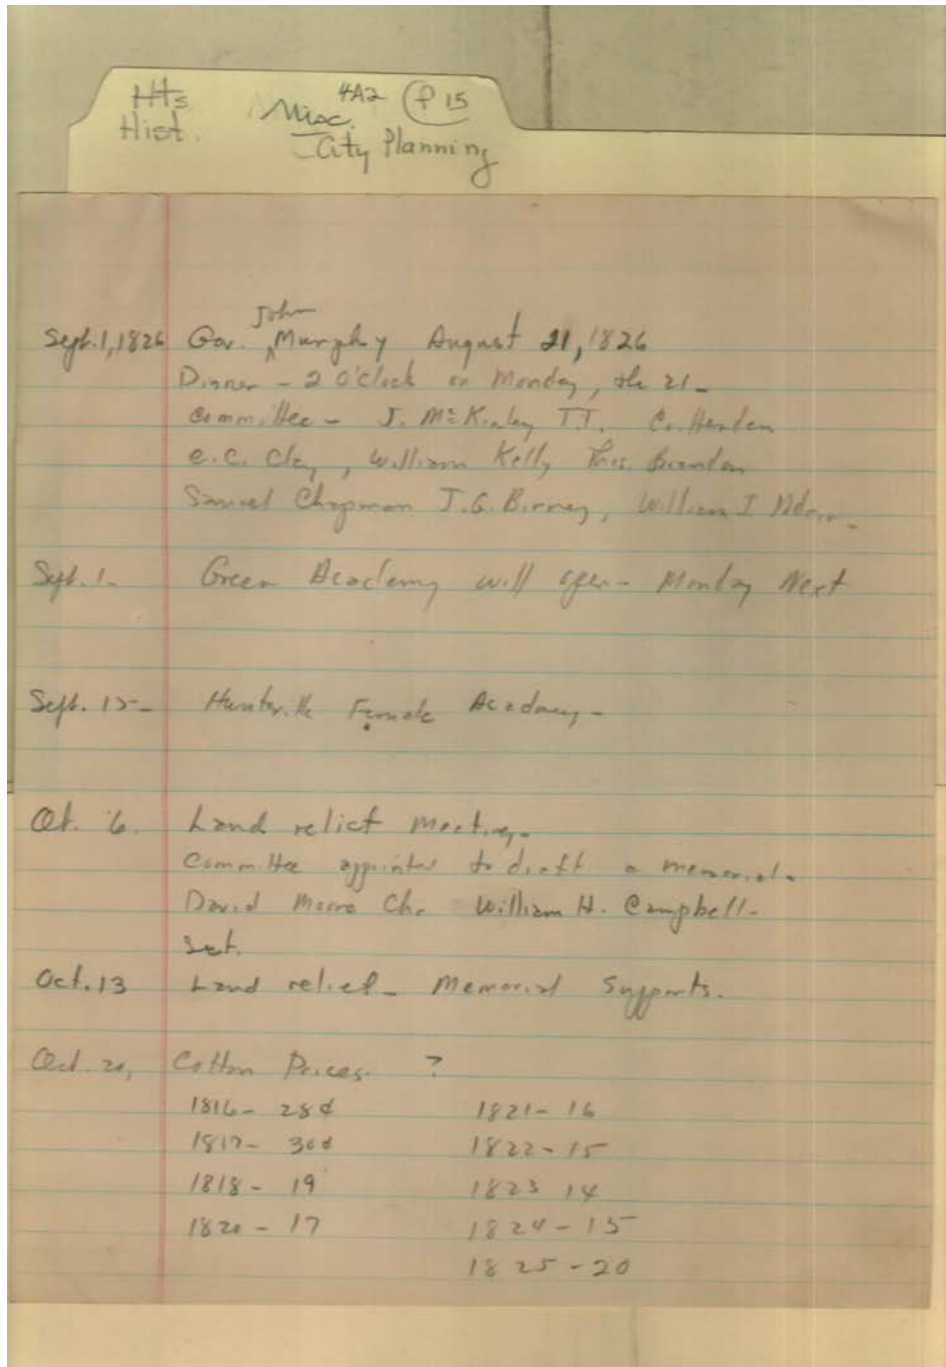 Hts
Hist.
4A2 P 15
Misc.
City Planning
John
Sept. 1, 1826 Gov. ^ Murphy August 21, 1826
Dinner - 2 O'clock on Monday, the 21-
Committee - J. McKinley T.T.
C.C. Clay, William Kelly Thos. Brandon
Samuel Chapman J.G. Birney, William I Adair -
Sept. 1- Green Academy will open - Monday Next
Sept. 15- Huntsville Female Academy -
Oct. 6. Land relief Meeting -
Committee appointed to draft a memorial -
David Moore Ch. William H. Campbell -
Oct. 13 Land relief - Memorial Supports.
Oct. 20, Cotton Prices. ?
1816 - 28¢ 1821 - 16
1817 - 30¢ 1822 - 15
1818 - 19 1823 14
1820 - 17 1824 - 15
1825 - 20